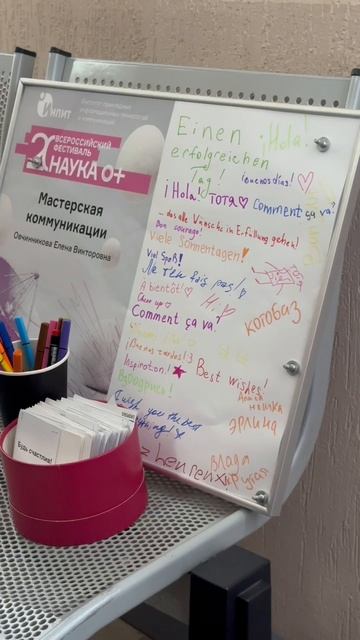 ИПИТ
Институт прикладных
информационных технологий
и коммуникации
ВСЕРОССИЙСКИЙ
ФЕСТИВАЛЬ
НАУКА 0+
Мастерская
коммуникации
Овчинникова Елена Викторовна
Einen
¡Hola!
erfolgreichen
Tag!
¡buenos dias!
¡Hola!
тотя
Comment ça va?
... das alle Wünsche in Erfüllung gehen)
Bon courage!
Viele Sonnentagen!
Viel Spaß!
Ne t'en fais pas!
A bientôt!
Hi,
Cheer up
котобаз
Comment ça va?
¡Buenas tardes! :3
Inspiration!
Best wishes!
Взбодрись!
I wish you the best
Даша
новика
ЭРЛИНА
Влада
Крутая
Будь счастлив!